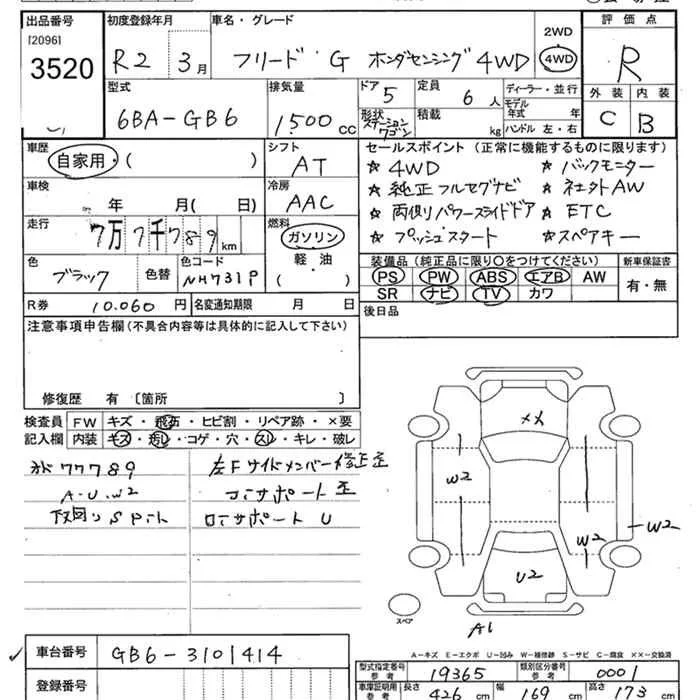 出品番号 初度登録年月 車名・グレード 2WD 評価点
[2096]
3520 R2 3月 フリード・G ホンダセンシング 4WD 4WD R
型式 排気量 ドア 定員 ディーラー・並行 外装 内装
5 6人 モデル年式 年
6BA-GB6 1500cc 形状 ステーションワゴン 積載 kg ハンドル 左・右 C B
車歴 シフト セールスポイント (正常に機能するものに限ります)
自家用・( ) AT ☆ 4WD ☆ バックモニター
車検 冷房 ☆ 純正フルセグナビ ☆ 社外AW
年 月( 日) AAC ☆ 両側パワースライドドア ☆ ETC
走行 7万7千789km 燃料 ☆ プッシュスタート ☆ スペアキー
ガソリン
色 色替 色コード 軽・油 装備品(純正品に限り○をつけてください) 新車保証書
ブラック NH731P ( ) PS PW ABS エアB AW 有・無
SR ナビ TV カワ
R券 10.060円 名変通知期限 月 日 後日品
注意事項申告欄(不具合内容等は具体的に記入して下さい)
修復歴 有 [箇所 ]
検査員 FW キズ・飛石・ヒビ割・リペア跡・×要
記入欄 内装 キズ・汚レ・コゲ・穴・スレ・キレ・破レ
77789 左Fサイドメンバー修正歪
A・U・W2 コアサポート歪
ロアサポートU
××
W2
W2
W2
U2
A1
スペア
A-キズ E-エクボ U-凹み W-補修跡 S-サビ C-腐食 ××-交換済
車台番号 GB6-3101414
登録番号
型式指定番号 参考 19365 類別区分番号 参考 0001
車庫証明用 参考 長さ 426cm 幅 169cm 高さ 173cm